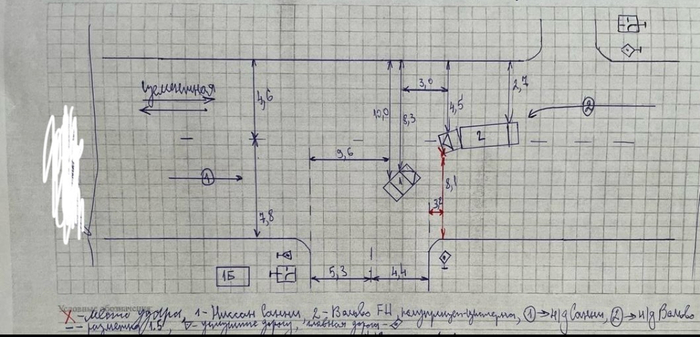 Цементная
4,6
10,0
8,3
3,0
4,5
2,7
2
2
9,6
1
1
7,8
3,2
8,1
1Б
5,3
4,4
X - место удара, 1 - Ниссан Санни, 2 - Вольво FH, полуприцеп-цистерна, 1 → Н/Д Санни, 2 → Н/Д Вольво
-- - разметка 1.5, ▽ - уступите дорогу, главная дорога - ◇